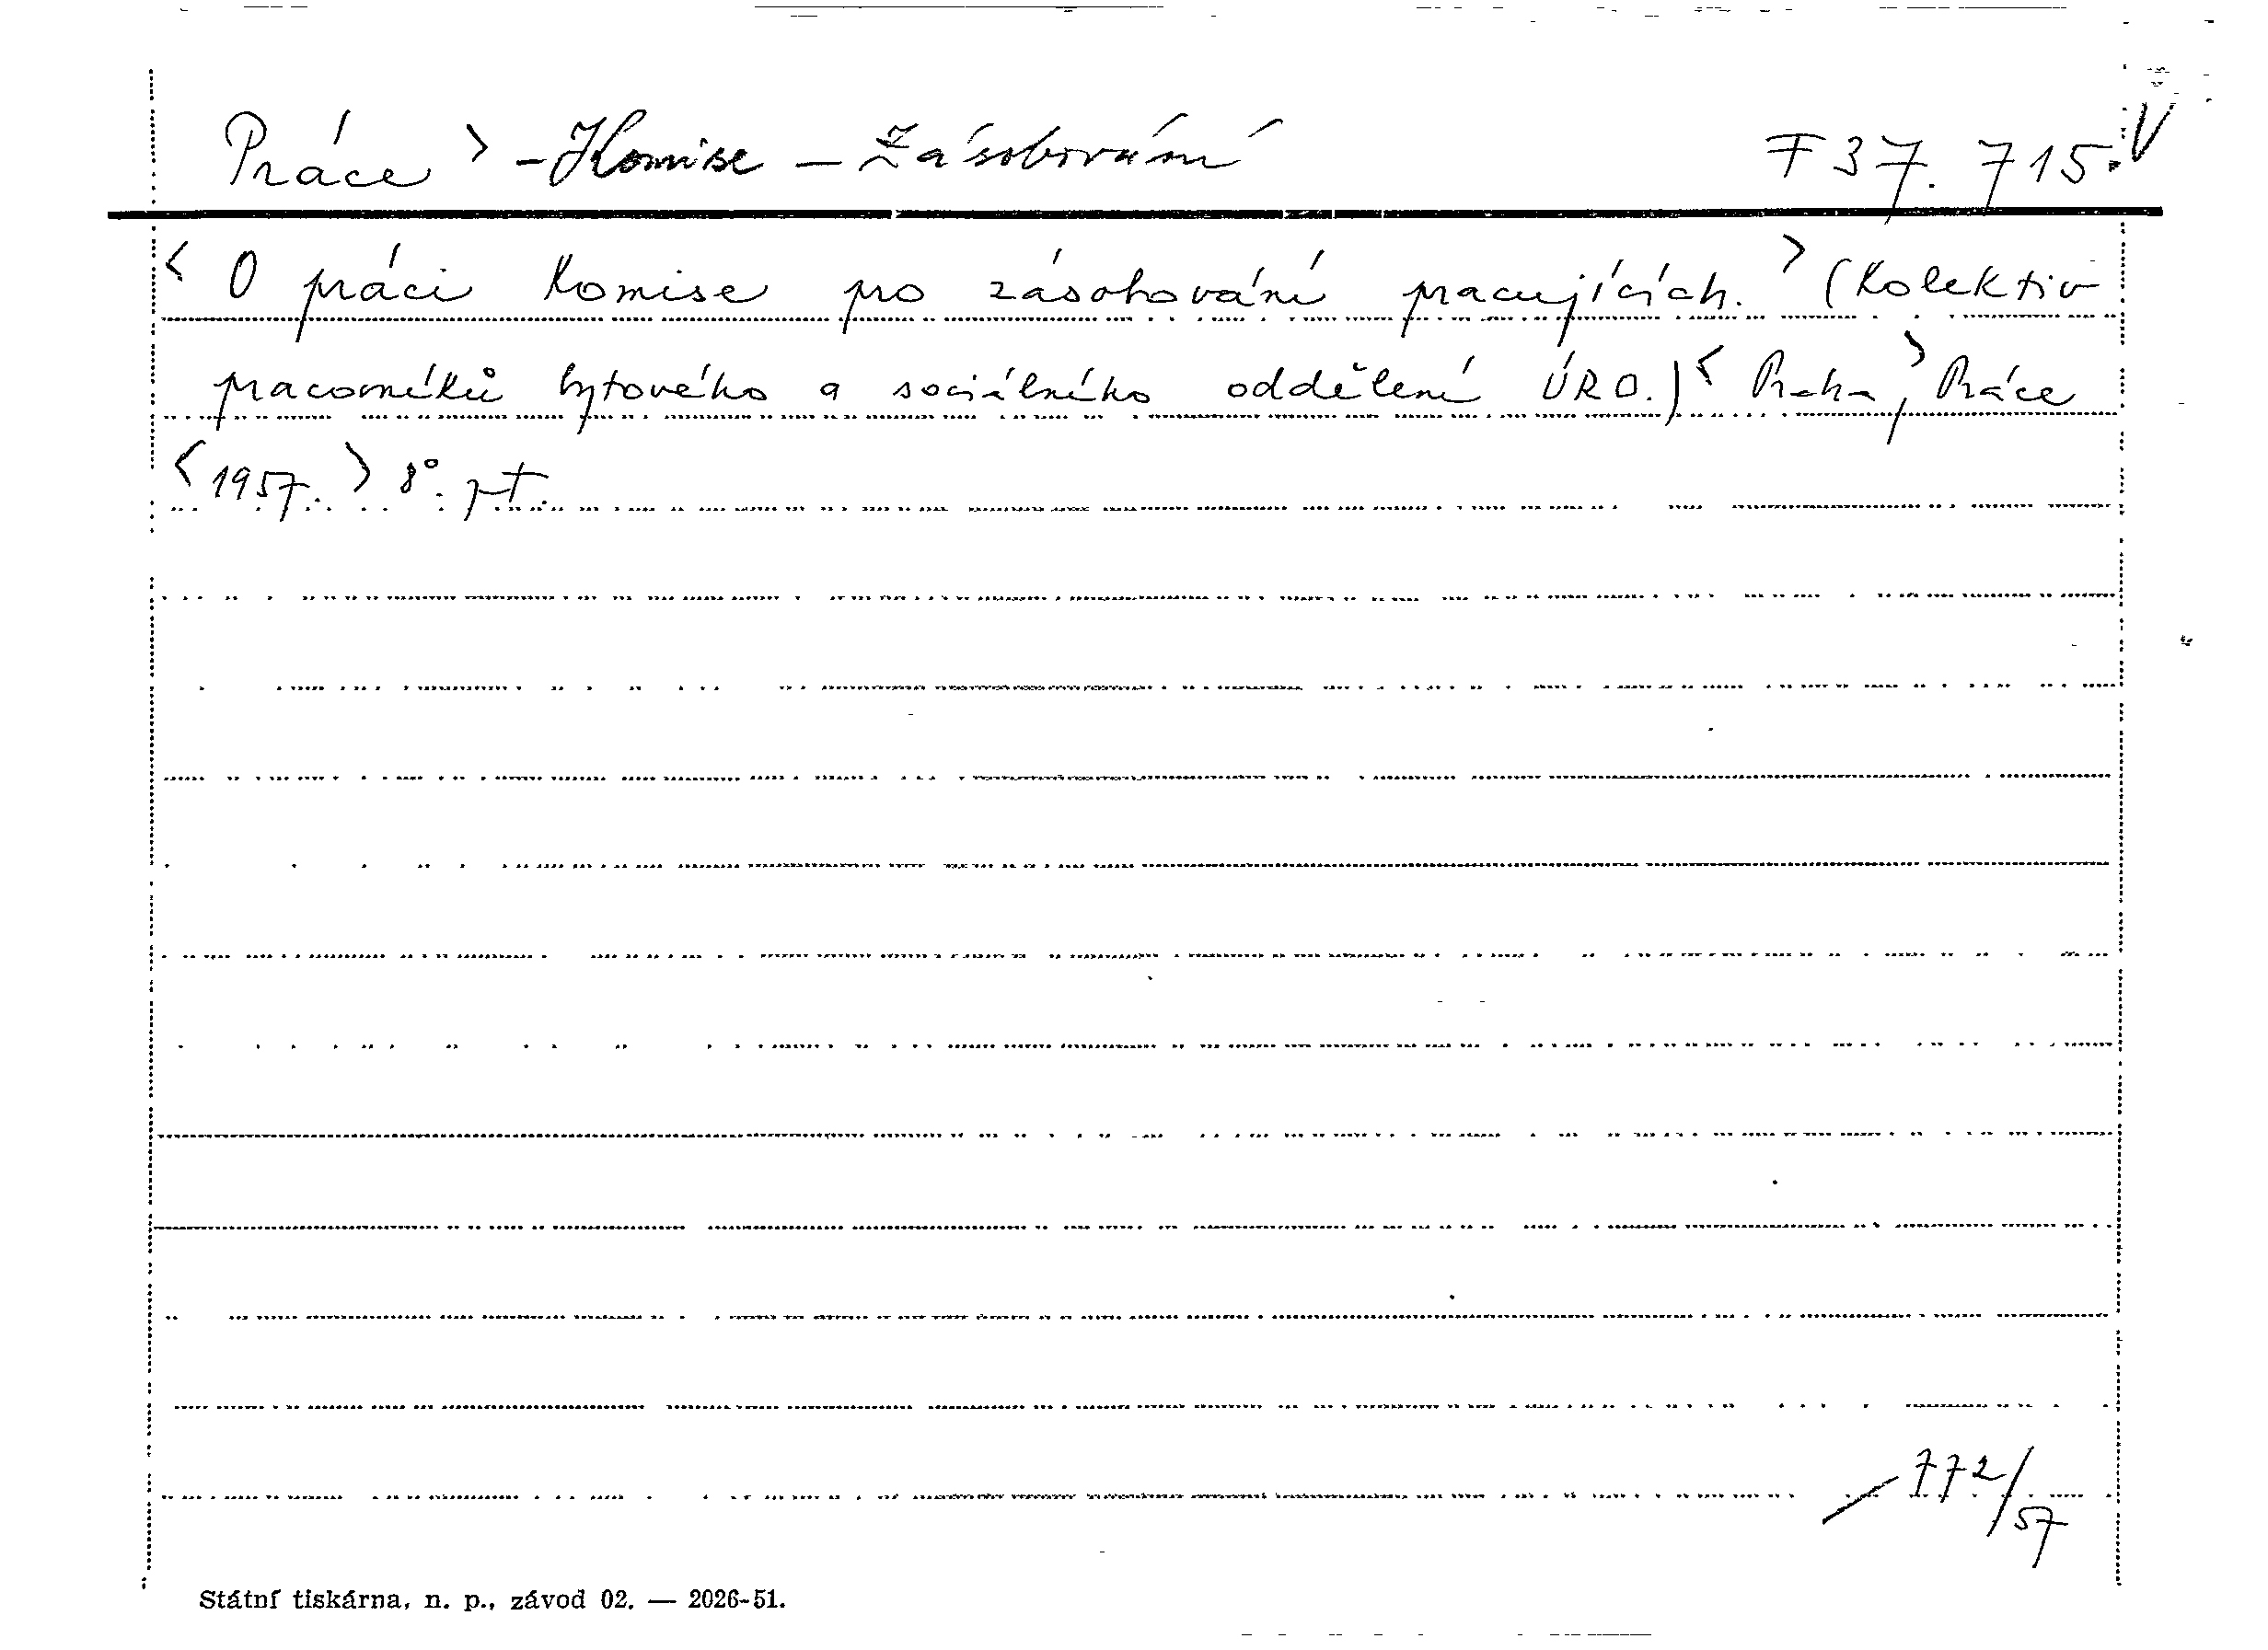 Práce > - Komise - Zásobování F 37. 715. V
< O práci Komise pro zásobování pracujících. > (Kolektiv
pracovníků bytového a sociálního oddělení ÚRO.) < Praha, > Práce
< 1957. > 8°. pt.
772/57
Státní tiskárna, n. p., závod 02. — 2026-51.